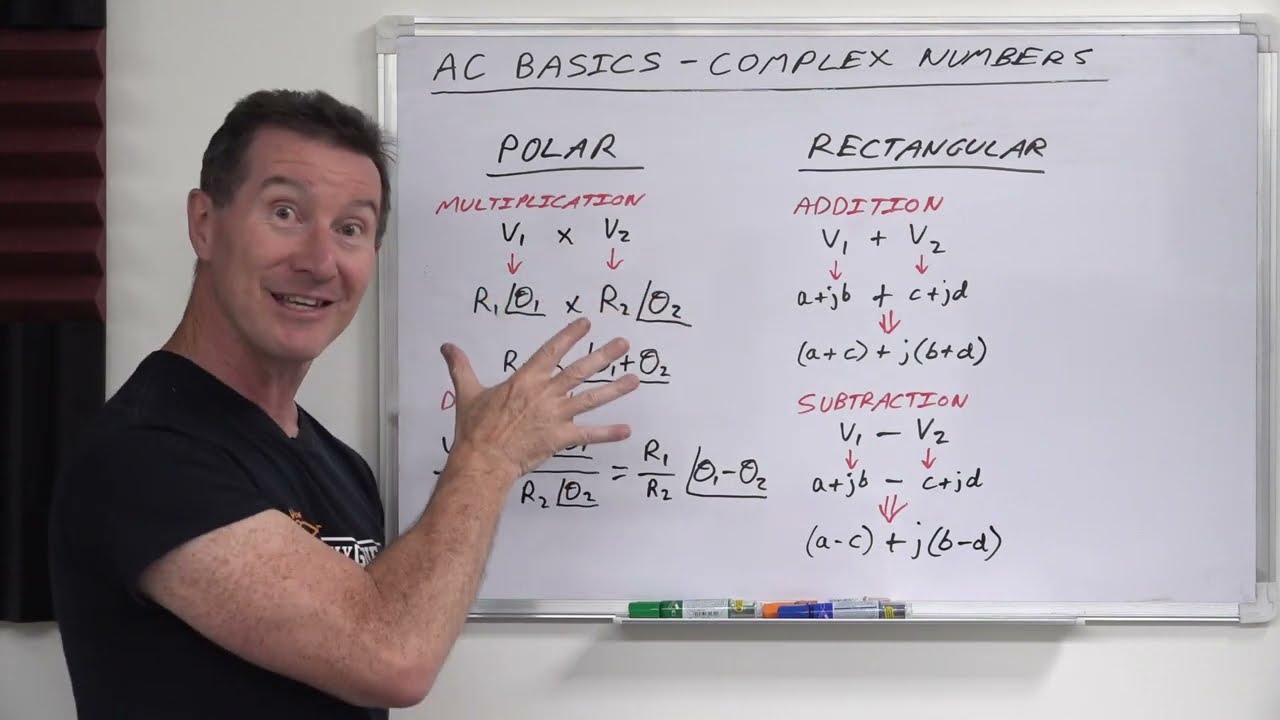 AC BASICS - COMPLEX NUMBERS
POLAR
MULTIPLICATION
V₁ x V₂
↓ ↓
R₁∠θ₁ x R₂∠θ₂
θ₁+θ₂
R₂∠θ₂ = R₁/R₂ ∠θ₁-θ₂
RECTANGULAR
ADDITION
V₁ + V₂
↓ ↓
a+jb + c+jd
⇓
(a+c)+j(b+d)
SUBTRACTION
V₁ - V₂
↓ ↓
a+jb - c+jd
⇓
(a-c)+j(b-d)